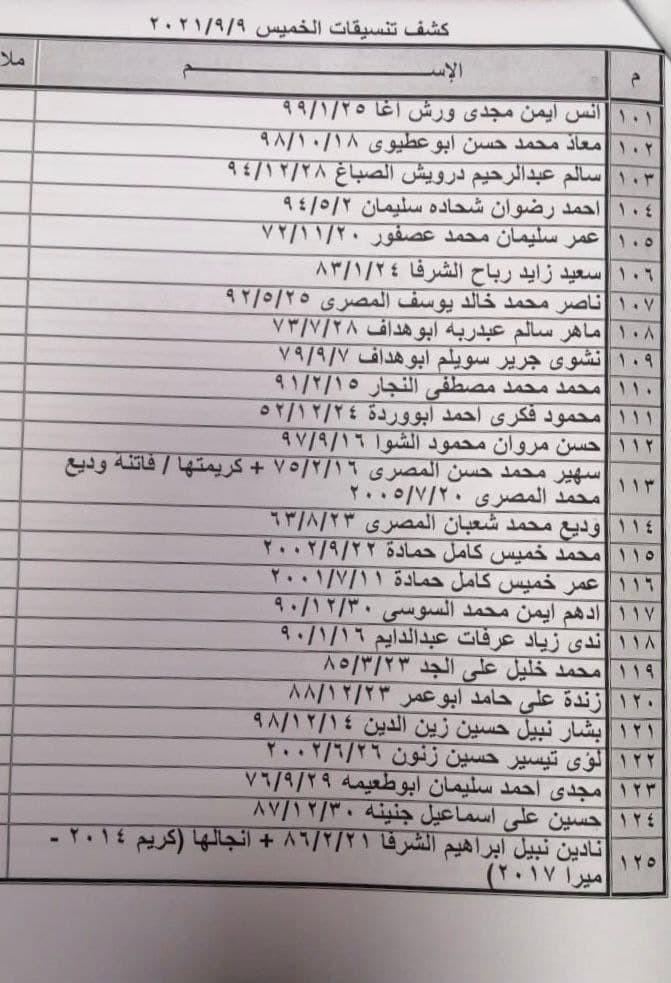 كشف تنسيقات الخميس ٢٠٢١/٩/٩
م الإســـــم ملا
١٠١ انس ايمن مجدى ورش اغا ٩٩/١/٢٥
١٠٢ معاذ محمد حسن ابوعطيوى ٩٨/١٠/١٨
١٠٣ سالم عبدالرحيم درويش الصباغ ٩٤/١٢/٢٨
١٠٤ احمد رضوان شحاده سليمان ٩٤/٥/٢
١٠٥ عمر سليمان محمد عصفور ٧٢/١١/٢٠
١٠٦ سعيد زايد رباح الشرفا ٨٣/١/٢٤
١٠٧ ناصر محمد خالد يوسف المصرى ٩٢/٥/٢٥
١٠٨ ماهر سالم عبدربه ابوهداف ٧٣/٧/٢٨
١٠٩ نشوى جرير سويلم ابوهداف ٧٩/٩/٧
١١٠ محمد محمد مصطفى النجار ٩١/٢/١٥
١١١ محمود فكرى احمد ابووردة ٥٢/١٢/٢٤
١١٢ حسن مروان محمود الشوا ٩٧/٩/١٦
١١٣ سهير محمد حسن المصرى ٧٥/٢/١٦ + كريمتها / فاتنة وديع
محمد المصرى ٢٠٠٥/٧/٢٠
١١٤ وديع محمد شعبان المصرى ٦٣/٨/٢٣
١١٥ محمد خميس كامل حمادة ٢٠٠٢/٩/٢٢
١١٦ عمر خميس كامل حمادة ٢٠٠١/٧/١١
١١٧ ادهم ايمن محمد السوسى ٩٠/١٢/٣٠
١١٨ ندى زياد عرفات عبدالدايم ٩٠/١/١٦
١١٩ محمد خليل على الجد ٨٥/٣/٢٣
١٢٠ زندة على حامد ابوعمر ٨٨/١٢/٢٣
١٢١ بشار نبيل حسين زين الدين ٩٨/١٢/١٤
١٢٢ لؤى تيسير حسين زنون ٢٠٠٢/٦/٢٦
١٢٣ مجدى احمد سليمان ابوطعيمه ٧٦/٩/٢٩
١٢٤ حسين على اسماعيل جنينه ٨٧/١٢/٣٠
١٢٥ نادين نبيل ابراهيم الشرفا ٨٦/٢/٢١ + انجالها (كريم ٢٠١٤ -
ميرا ٢٠١٧)